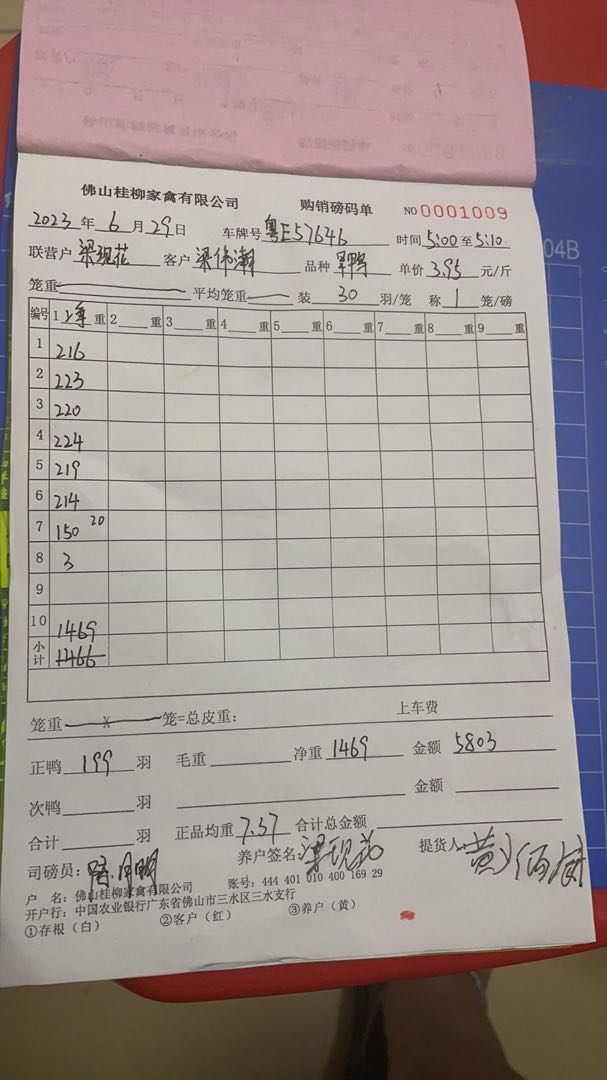 佛山桂柳家禽有限公司 购销磅码单 NO 0001009
2023 年 6 月 29 日 车牌号 粤E57646 时间 5:00 至 5:10
联营户 梁现花 客户 梁伟潮 品种 旱鸭 单价 3.95 元/斤
笼重 平均笼重 装 30 羽/笼 称 1 笼/磅
编号 1 净 重 2 重 3 重 4 重 5 重 6 重 7 重 8 重 9 重
1 216
2 223
3 220
4 224
5 219
6 214
7 150 20
8 3
9
10 1469
小计 1466
笼重 x 笼=总皮重: 上车费
正鸭 199 羽 毛重 净重 1469 金额 5803
次鸭 羽 金额
合计 羽 正品均重 7.37 合计总金额
司磅员: 养户签名: 梁现花 提货人
户 名: 佛山桂柳家禽有限公司 账号: 444 401 010 400 169 29
开户行: 中国农业银行广东省佛山市三水区三水支行
①存根(白) ②客户(红) ③养户(黄)
04B